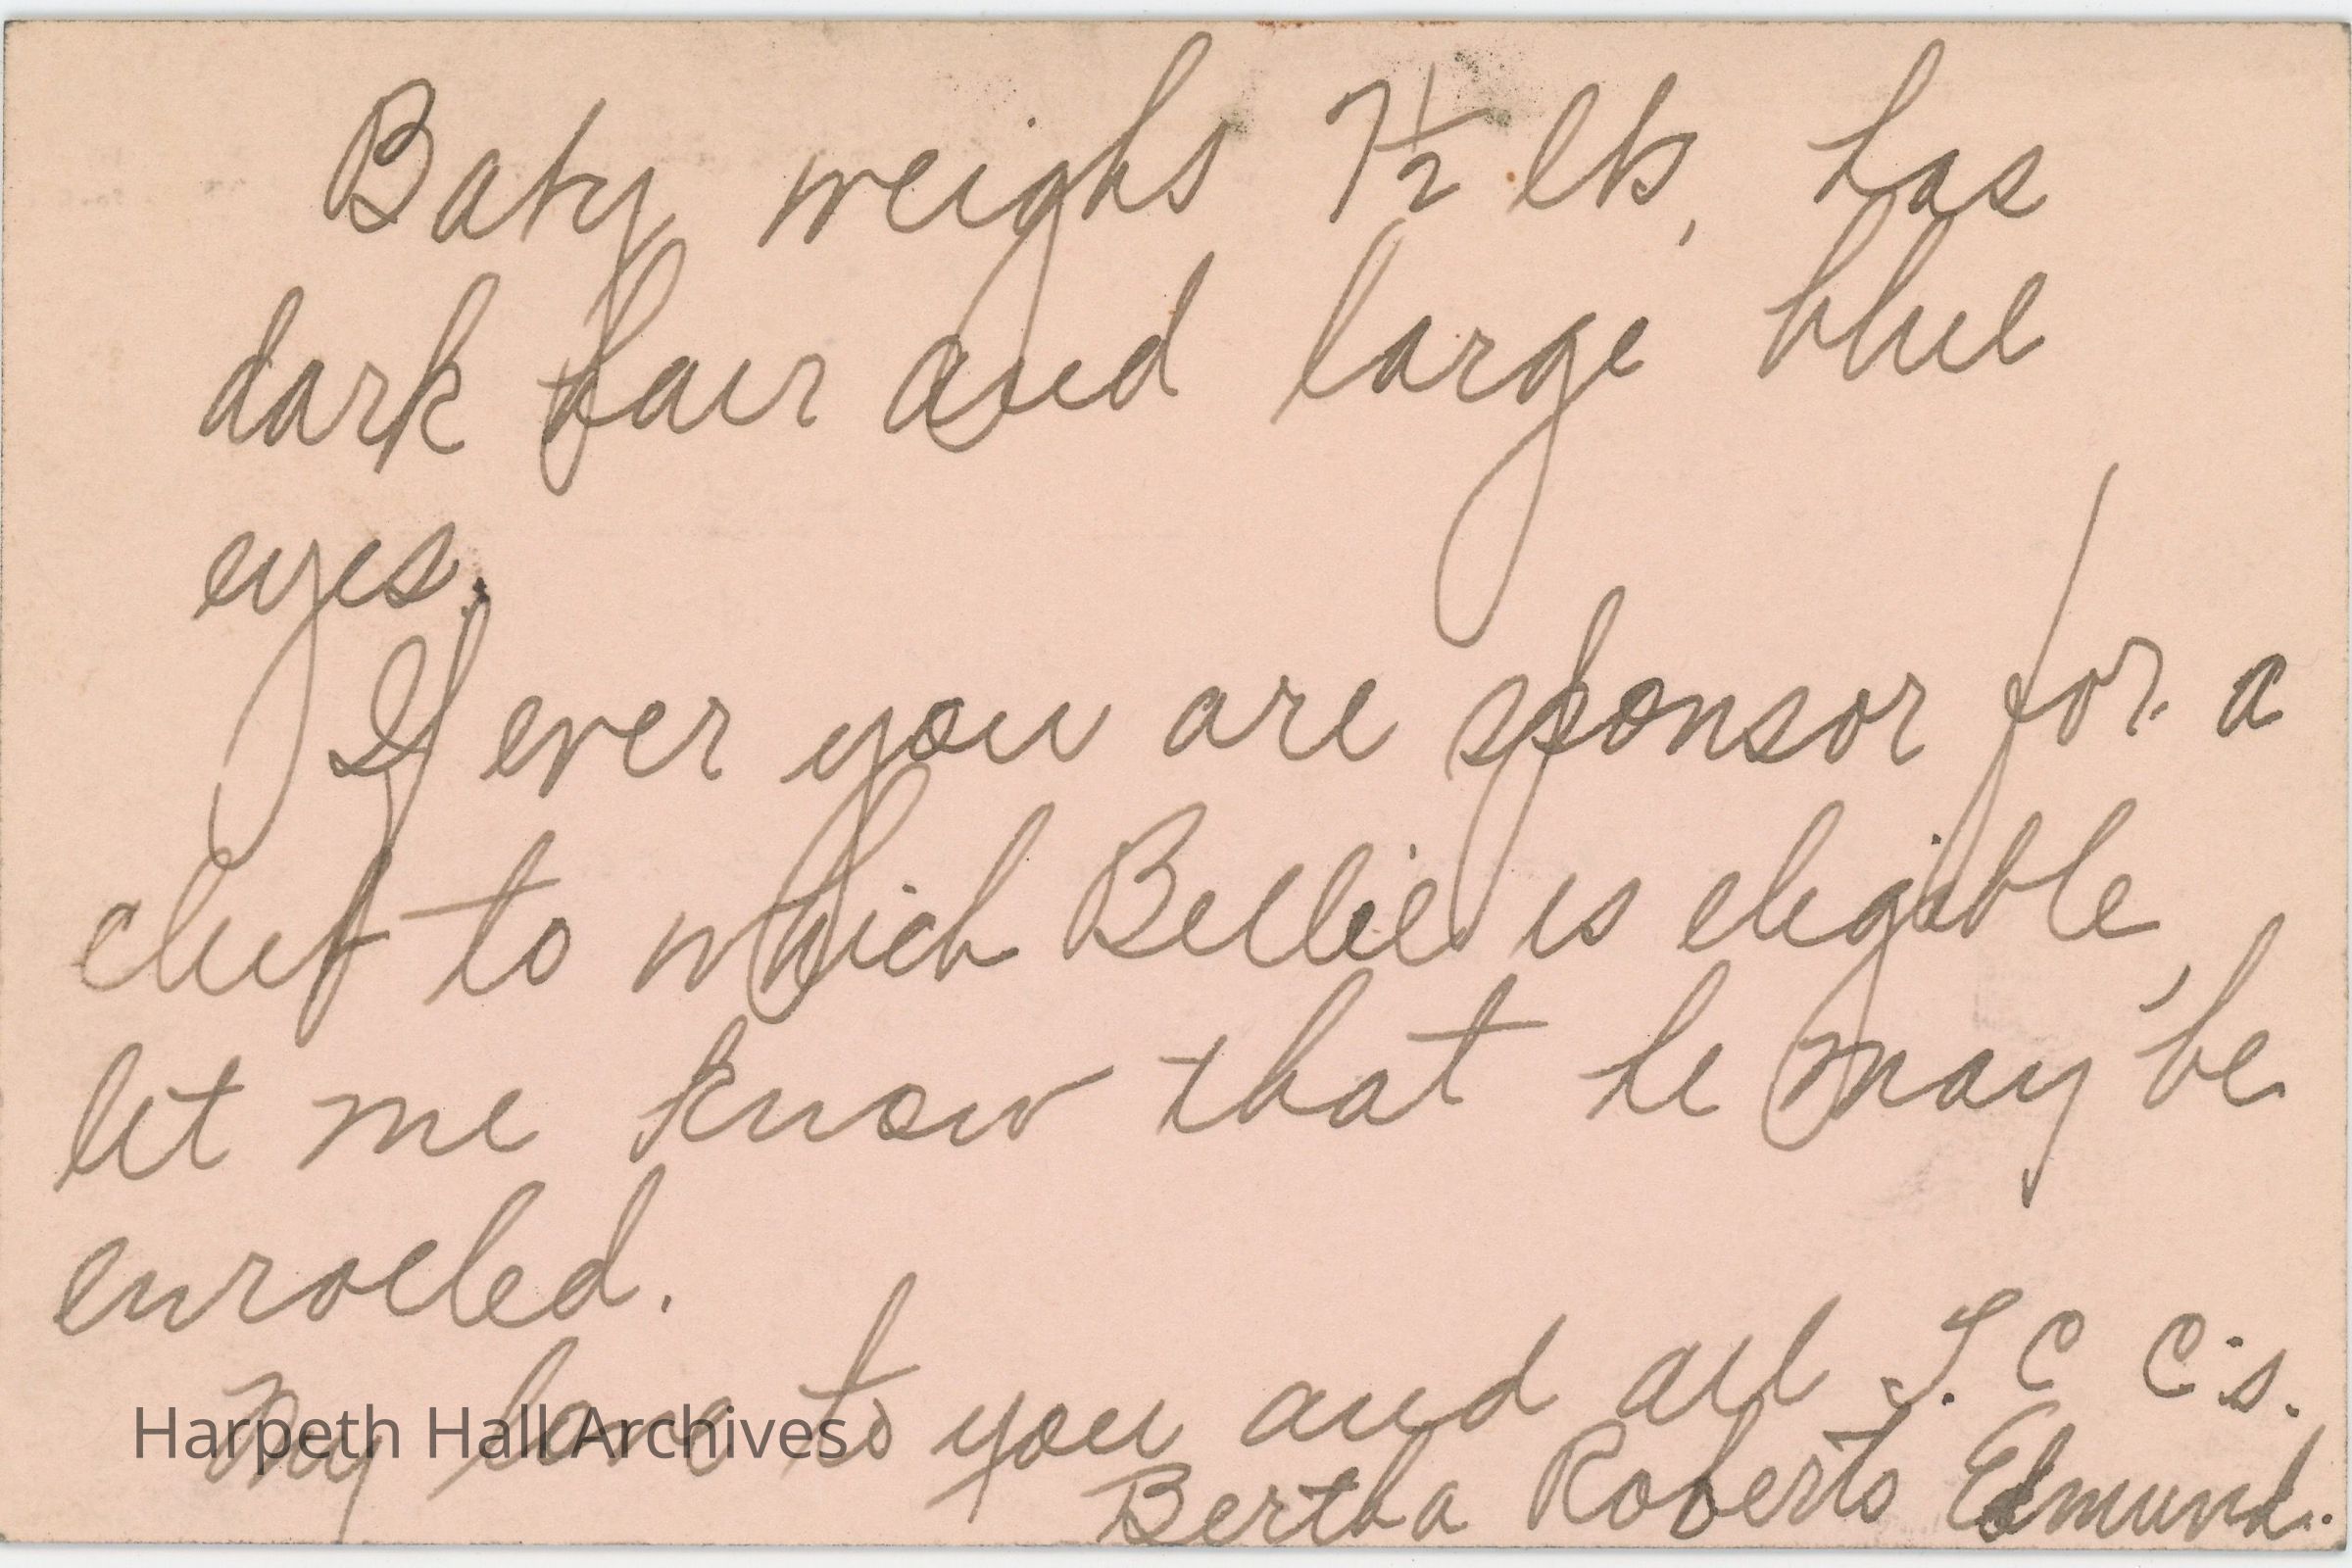 Baby weighs 7½ lbs, has
dark hair and large blue
eyes.
If ever you are sponsor for a
club to which Billie is eligible,
let me know that he may be
enrolled.
My love to you and all T. C C's.
Bertha Roberts Edmund.
Harpeth Hall Archives